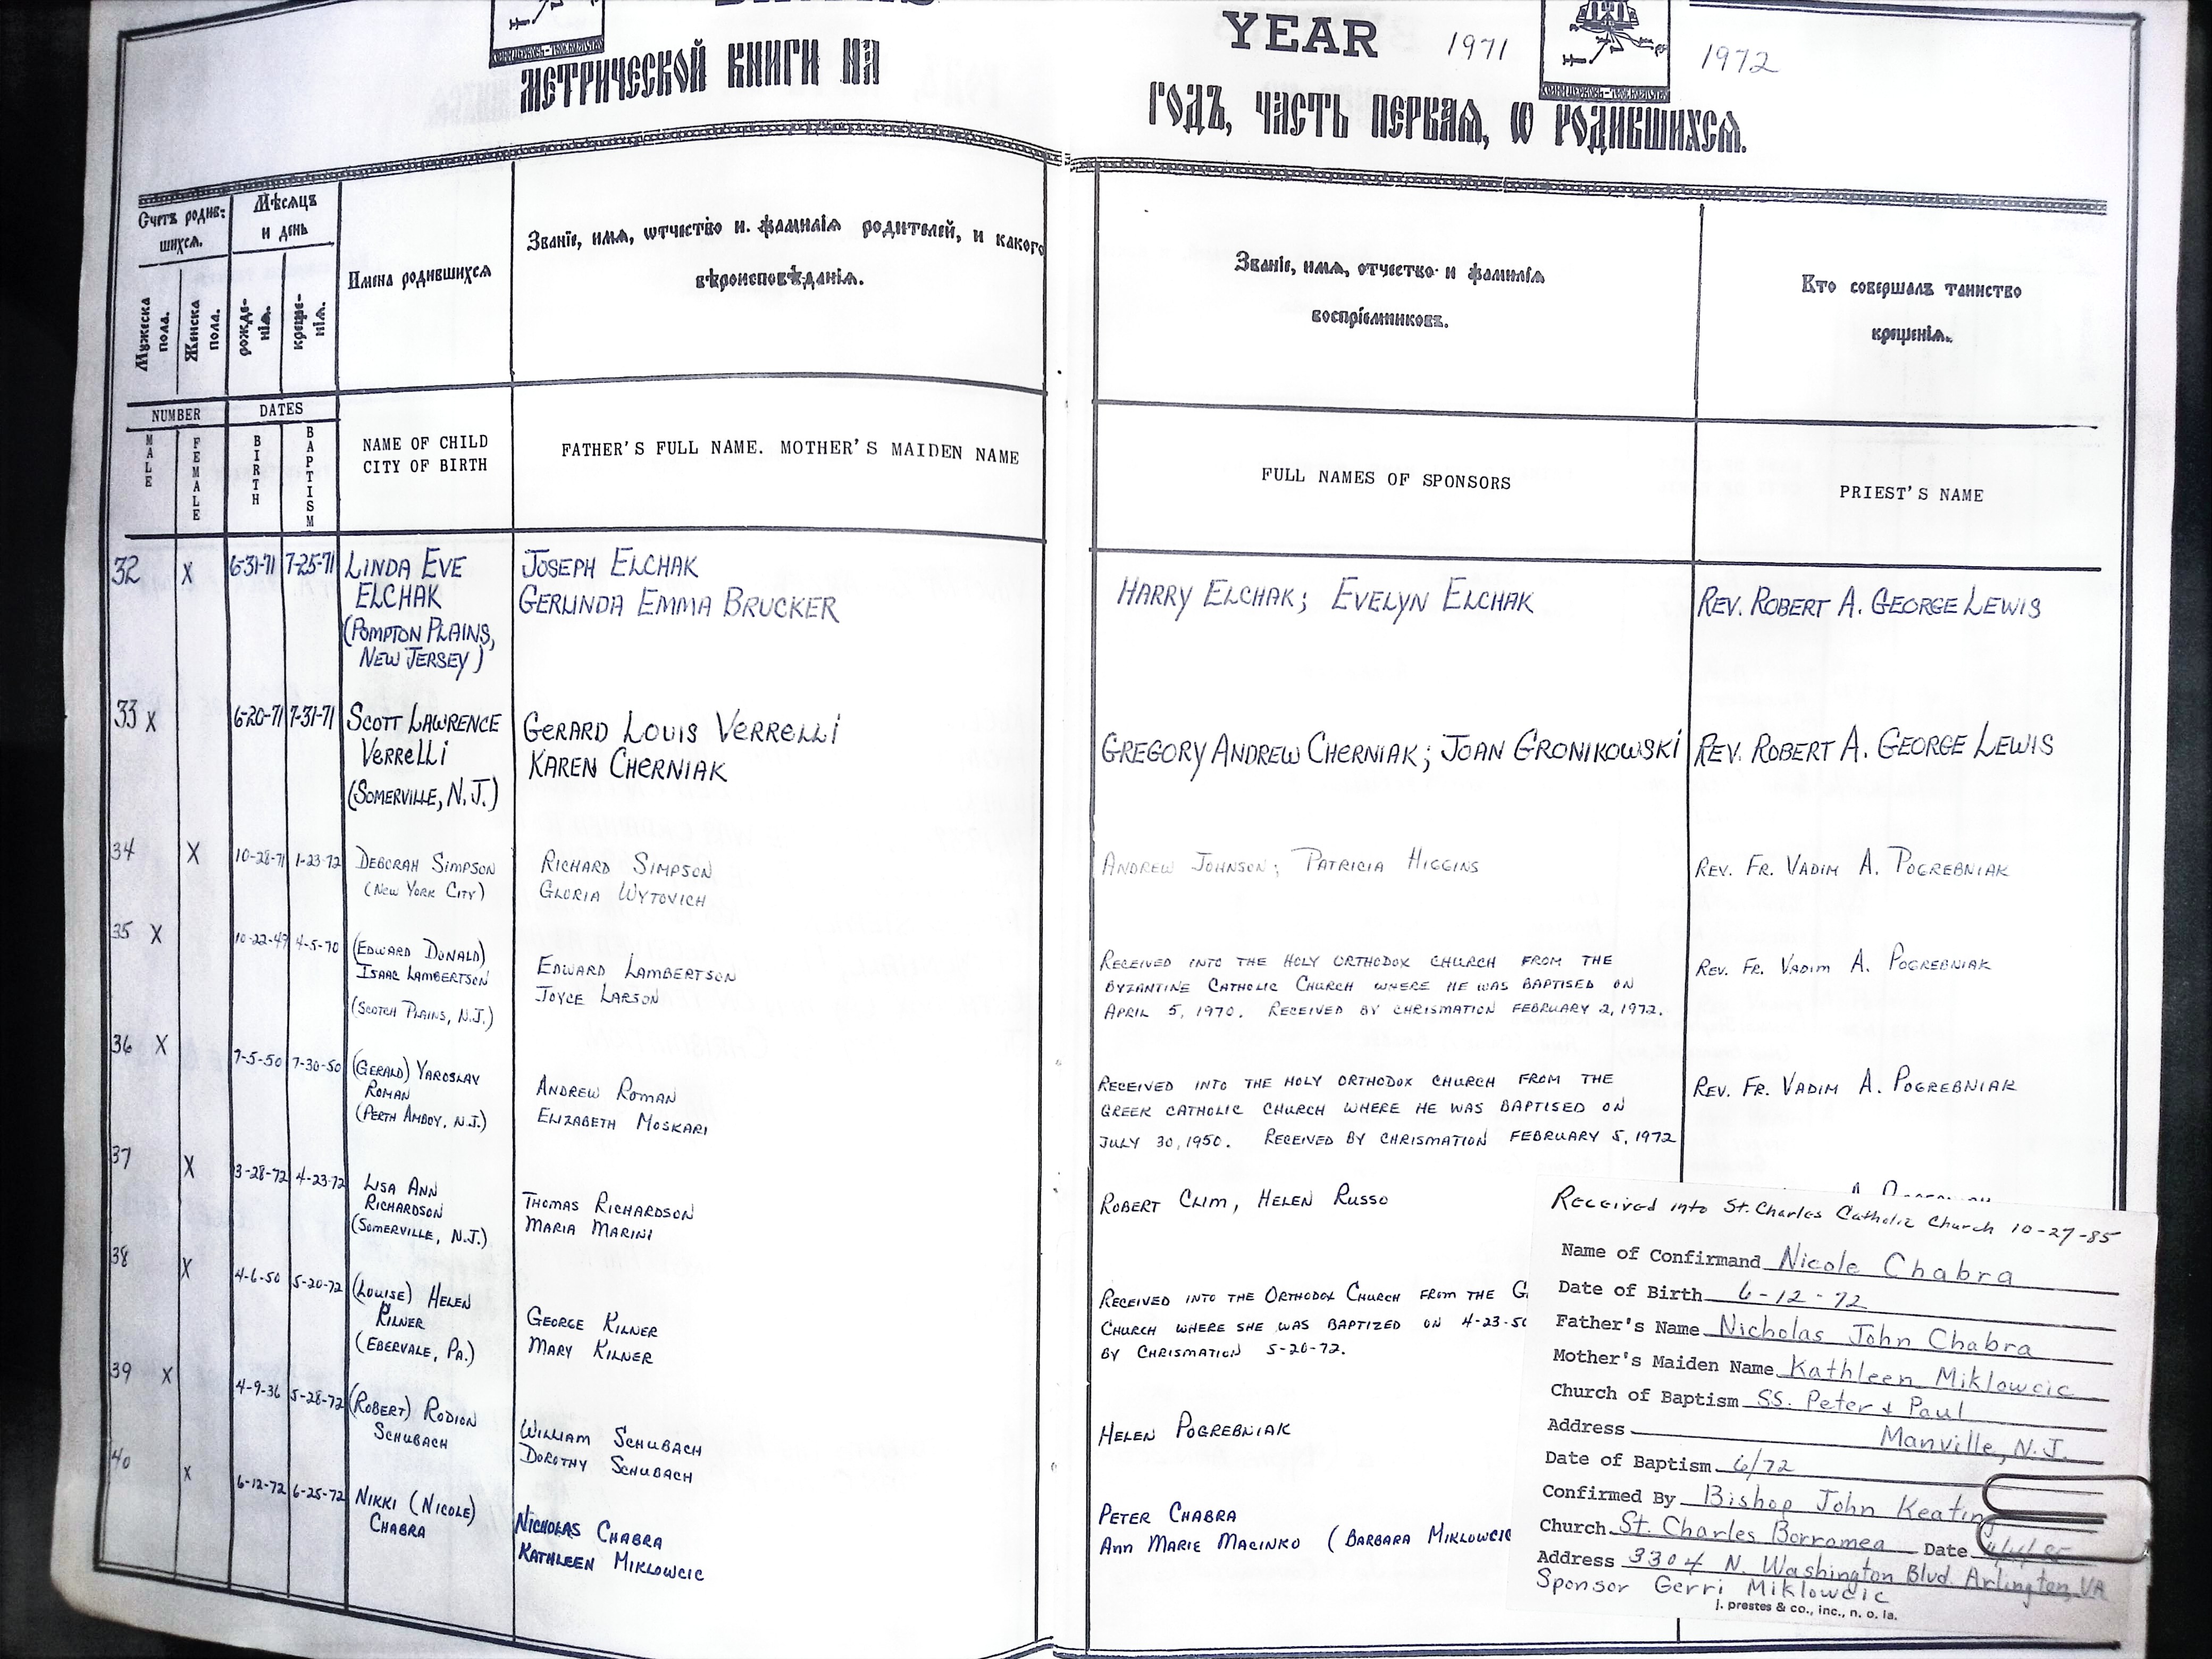 МЕТРИЧЕСКОЙ КНИГИ НА
YEAR 1971 1972
ГОДЪ, ЧАСТЬ ПЕРВАЯ, Ѡ РОДИВШИХСЯ.
Счетъ родив:
шихся.
Мѣсяцъ
и день
Мужеска
пола.
Женска
пола.
рожде-
нія.
креще-
нія.
Имена родившихся
Званіе, имя, ѡтчествіо и. фамилія родителей, и какого
вѣроисповѣданія.
Званіе, имя, отчество и фамилія
воспріемниковъ.
Кто совершалъ таинство
крещенія.
NUMBER
DATES
MALE
FEMALE
BIRTH
BAPTISM
NAME OF CHILD
CITY OF BIRTH
FATHER'S FULL NAME. MOTHER'S MAIDEN NAME
FULL NAMES OF SPONSORS
PRIEST'S NAME
32 X 6-31-71 7-25-71 LINDA EVE
ELCHAK
(POMPTON PLAINS,
NEW JERSEY)
JOSEPH ELCHAK
GERLINDA EMMA BRUCKER
HARRY ELCHAK; EVELYN ELCHAK
REV. ROBERT A. GEORGE LEWIS
33 X 6-20-71 7-31-71 SCOTT LAWRENCE
VERRELLI
(SOMERVILLE, N.J.)
GERARD LOUIS VERRELLI
KAREN CHERNIAK
GREGORY ANDREW CHERNIAK; JOAN GRONIKOWSKI
REV. ROBERT A. GEORGE LEWIS
34 X 10-28-71 1-23-72 DEBORAH SIMPSON
(NEW YORK CITY)
RICHARD SIMPSON
GLORIA WYTOVICH
ANDREW JOHNSON; PATRICIA HIGGINS
REV. FR. VADIM A. POGREBNIAK
35 X 10-22-49 4-5-70 (EDWARD DONALD)
ISAAC LAMBERTSON
(SCOTCH PLAINS, N.J.)
EDWARD LAMBERTSON
JOYCE LARSON
RECEIVED INTO THE HOLY ORTHODOX CHURCH FROM THE
BYZANTINE CATHOLIC CHURCH WHERE HE WAS BAPTISED ON
APRIL 5, 1970. RECEIVED BY CHRISMATION FEBRUARY 2, 1972.
REV. FR. VADIM A. POGREBNIAK
36 X 7-5-50 7-30-50 (GERALD) YAROSLAV
ROMAN
(PERTH AMBOY, N.J.)
ANDREW ROMAN
ELIZABETH MOSKARI
RECEIVED INTO THE HOLY ORTHODOX CHURCH FROM THE
GREEK CATHOLIC CHURCH WHERE HE WAS BAPTISED ON
JULY 30, 1950. RECEIVED BY CHRISMATION FEBRUARY 5, 1972
REV. FR. VADIM A. POGREBNIAK
37 X 3-28-72 4-23-72 LISA ANN
RICHARDSON
(SOMERVILLE, N.J.)
THOMAS RICHARDSON
MARIA MARINI
ROBERT CLIM, HELEN RUSSO
38 X 4-6-50 5-20-72 (LOUISE) HELEN
KILNER
(EBERVALE, PA.)
GEORGE KILNER
MARY KILNER
RECEIVED INTO THE ORTHODOX CHURCH FROM THE G
CHURCH WHERE SHE WAS BAPTIZED ON 4-23-50
BY CHRISMATION 5-20-72.
39 X 4-9-36 5-28-72 (ROBERT) RODION
SCHUBACH
WILLIAM SCHUBACH
DOROTHY SCHUBACH
HELEN POGREBNIAK
40 X 6-12-72 6-25-72 NIKKI (NICOLE)
CHABRA
NICHOLAS CHABRA
KATHLEEN MIKLOWCIC
PETER CHABRA
ANN MARIE MACINKO (BARBARA MIKLOWCIC
Received into St. Charles Catholic Church 10-27-85
Name of Confirmand Nicole Chabra
Date of Birth 6-12-72
Father's Name Nicholas John Chabra
Mother's Maiden Name Kathleen Miklowcic
Church of Baptism SS. Peter & Paul
Address Manville, N.J.
Date of Baptism 6/72
Confirmed By Bishop John Keating
Church St. Charles Borromea Date
Address 3304 N. Washington Blvd. Arlington, VA
Sponsor Gerri Miklowcic
j. prestes & co., inc., n. o. la.